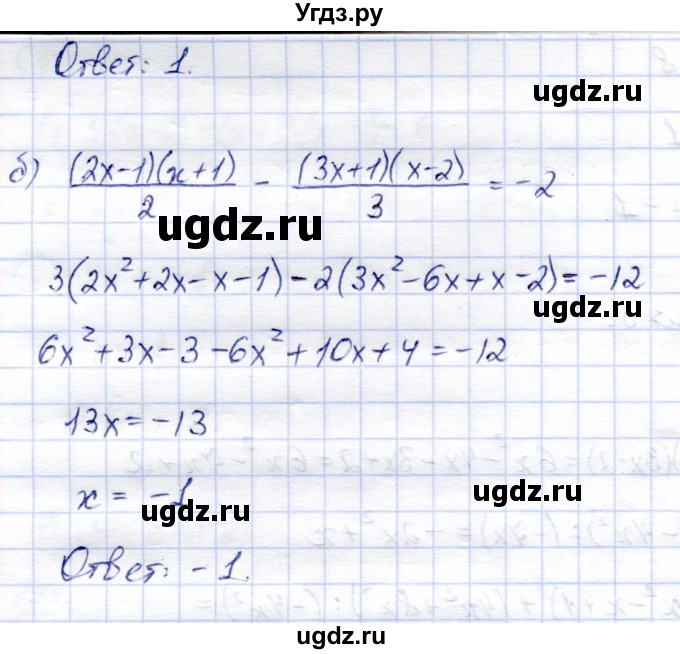 Угдз.ру
Ответ: 1.
ugdz.ru
б) (2x-1)(x+1)/2 - (3x+1)(x-2)/3 = -2
ugdz.ru
3(2x²+2x-x-1)-2(3x²-6x+x-2)= -12
ugdz.ru
6x²+3x-3-6x²+10x+4=-12
ugdz.ru
13x=-13
x = -1
ugdz.ru
ugdz.ru
Ответ: -1.
ugdz.ru